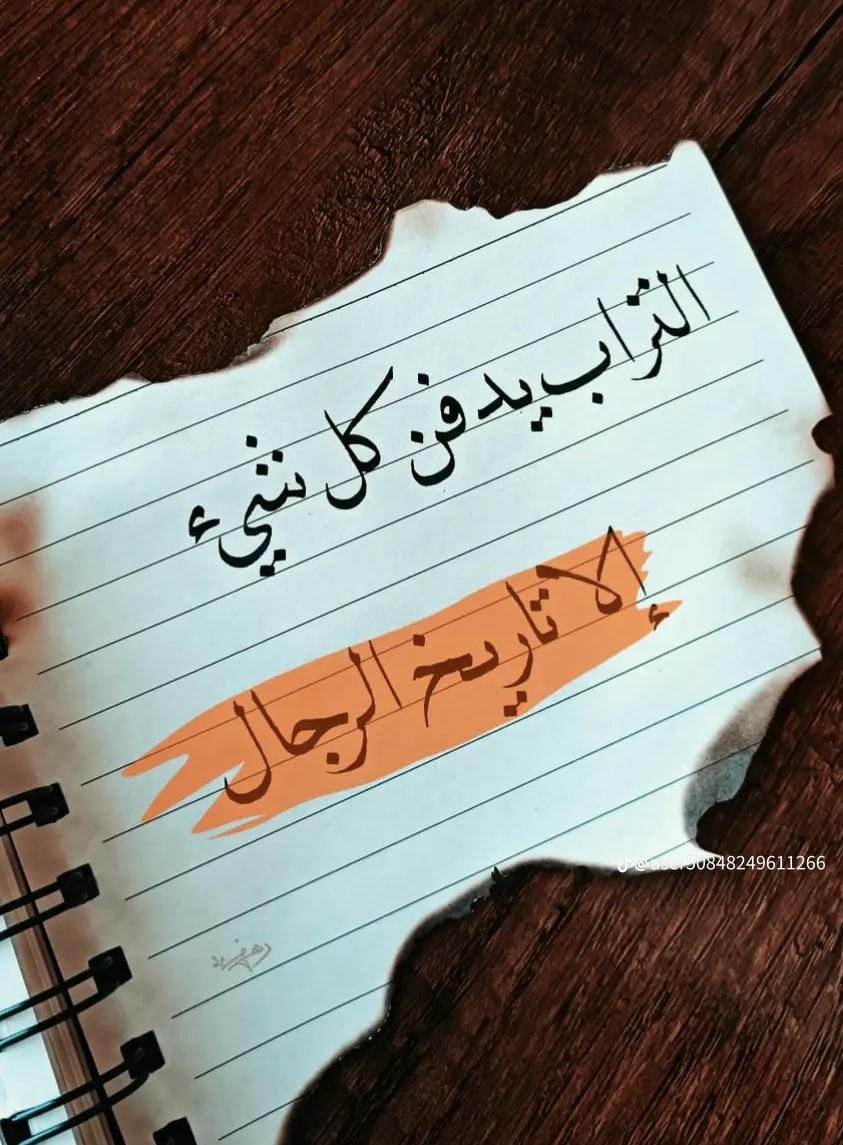 التراب يدفن كل شيء
إلا تاريخ الرجال
@user50848249611266